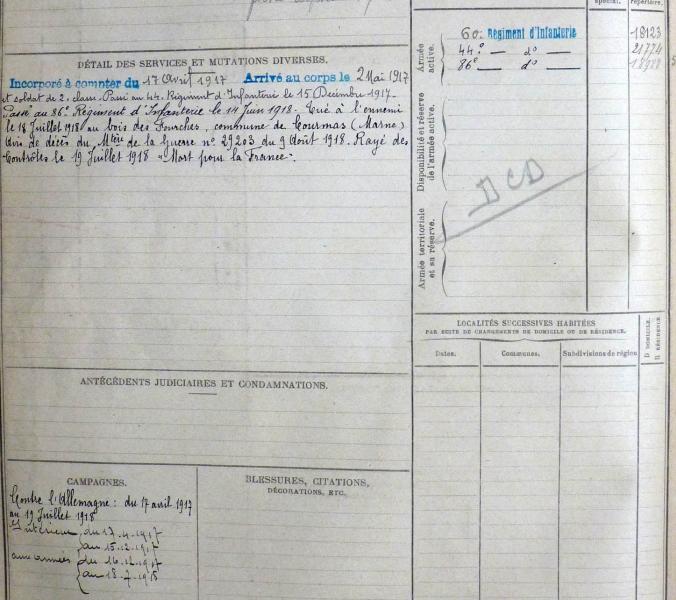 spécial.
répertoire.
60e Régiment d'Infanterie 18123
44e — do — 21774
86e — do —
Armée active.
Disponibilité et réserve de l'armée active.
Armée territoriale et sa réserve.
DCD
DÉTAIL DES SERVICES ET MUTATIONS DIVERSES.
Incorporé à compter du 17 avril 1917 Arrivé au corps le 2 Mai 1917
et soldat de 2e classe. Passé au 44e Régiment d'Infanterie le 15 Décembre 1917.
Passé au 86e Régiment d'Infanterie le 14 Juin 1918. Tué à l'ennemi
le 18 Juillet 1918 au bois des Fourches, commune de Courmas (Marne)
Avis de décès du Mtère de la Guerre no 29203 du 9 Août 1918. Rayé des
Contrôles le 19 Juillet 1918 "Mort pour la France".
LOCALITÉS SUCCESSIVES HABITÉES
PAR SUITE DE CHANGEMENTS DE DOMICILE OU DE RÉSIDENCE.
Dates.
Communes.
Subdivisions de région
D DOMICILE.
R RÉSIDENCE
ANTÉCÉDENTS JUDICIAIRES ET CONDAMNATIONS.
CAMPAGNES.
Contre l'Allemagne : du 17 avril 1917
au 19 Juillet 1918
Intérieur du 17.4.1917
au 15.12.1917
aux armées du 16.12.1917
au 18.7.1918
BLESSURES, CITATIONS,
DÉCORATIONS, ETC.